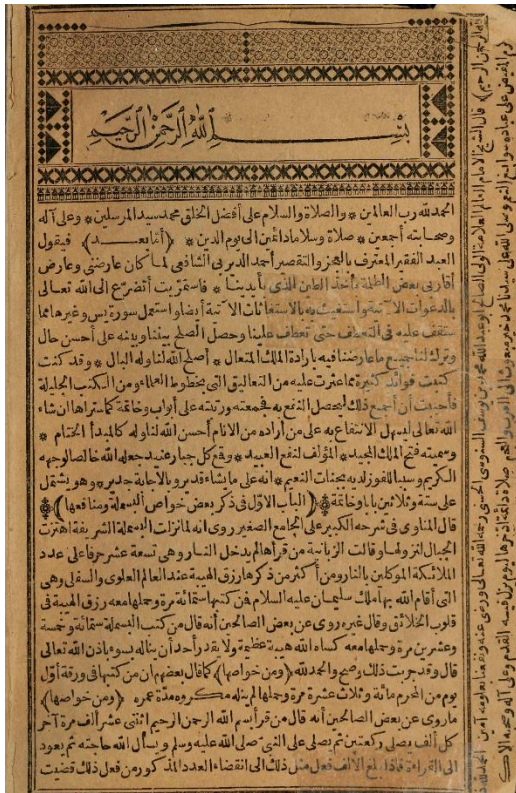 بسم الله الرحمن الرحيم
الحمد لله رب العالمين * والصلاة والسلام على أفضل الخلق محمد سيد المرسلين * وعلى آله
وصحابته أجمعين * صلاة وسلاما دائمين الى يوم الدين * (أما بعد) فيقول
العبد الفقير المعترف بالعجز والتقصير أحمد الديربى الشافعى لما كان عارضنى وعارض
أقاربى بعض الظلمة بأخذ الطين الذى بأيدينا * فاستمريت أتضرع الى الله تعالى
بالدعوات الآتية وأستغيث به بالاستغاثات الآتية أيضا وأستعمل سورة يس وغيرها مما
ستقف عليه فى التعطف حتى تعطف علينا وحصل الصلح بيننا وبينه على أحسن حال
وترك لنا جميع ما عارضنا فيه بارادة الملك المتعال * أصلح الله لنا وله البال * وقد كنت
كتبت فوائد كثيرة مما عثرت عليه من التعاليق التى بخطوط العلماء ومن الكتب الجليلة
فأحببت أن أجمع ذلك ليحصل النفع به فجمعته ورتبته على أبواب وخاتمة كما ستراها ان شاء
الله تعالى ليسهل الانتفاع به على من أراده من الانام أحسن الله لنا وله كالمبدأ الختام *
وسميته فتح الملك المجيد * المؤلف لنفع العبيد * وقمع كل جبار عنيد جعله الله خالصا لوجهه
الكريم وسببا للفوز لديه بجنات النعيم * انه على ما يشاء قدير وبالاجابة جدير * وهو يشتمل
على ستة وثلاثين بابا وخاتمة (الباب الاول فى ذكر بعض خواص البسملة ومنافعها)
قال المناوى فى شرحه الكبير على الجامع الصغير روى انه لما نزلت البسملة الشريفة اهتزت
الجبال لنزولها وقالت الزبانية من قرأها لم يدخل النار وهى تسعة عشر حرفا على عدد
الملائكة الموكلين بالنار ومن أكثر من ذكرها رزق الهيبة عند العالم العلوى والسفلى وهى
التى أقام الله بها ملك سليمان عليه السلام فمن كتبها ستمائة مرة وحملها معه رزق الهيبة فى
قلوب الخلائق وقال غيره روى عن بعض الصالحين أنه قال من كتب البسملة ستمائة وخمسة
وعشرين مرة وحملها معه كساه الله هيبة عظيمة ولا يقدر أحد أن يناله بسوء باذن الله تعالى
قال وقد جربت ذلك وصح والحمد لله (ومن خواصها) كما قال بعضهم ان من كتبها فى ورقة أول
يوم من المحرم مائة وثلاث عشرة مرة وحملها لم ينله مكروه مدة عمره (ومن خواصها)
ما روى عن بعض الصالحين أنه قال من قرأ بسم الله الرحمن الرحيم اثنى عشر ألف مرة آخر
كل ألف يصلى ركعتين ثم يصلى على النبى صلى الله عليه وسلم ويسأل الله حاجته ثم يعود
الى القراءة فاذا بلغ الالف فعل مثل ذلك الى انقضاء العدد المذكور من فعل ذلك قضيت
الرحمن الرحيم) قال الشيخ الامام العالم العلامة الولى الصالح أبو عبد الله محمد بن يوسف السنوسى الحسنى رحمه الله تعالى ورضى عنه ونفعنا به وبعلومه آمين الحمد لله
على عباده سوابغ النعم وصلى الله على سيدنا محمد خير مبعوث الى العرب والعجم صلاة دائمة ليوم تزل فيه القدم وعلى آله وصحبه